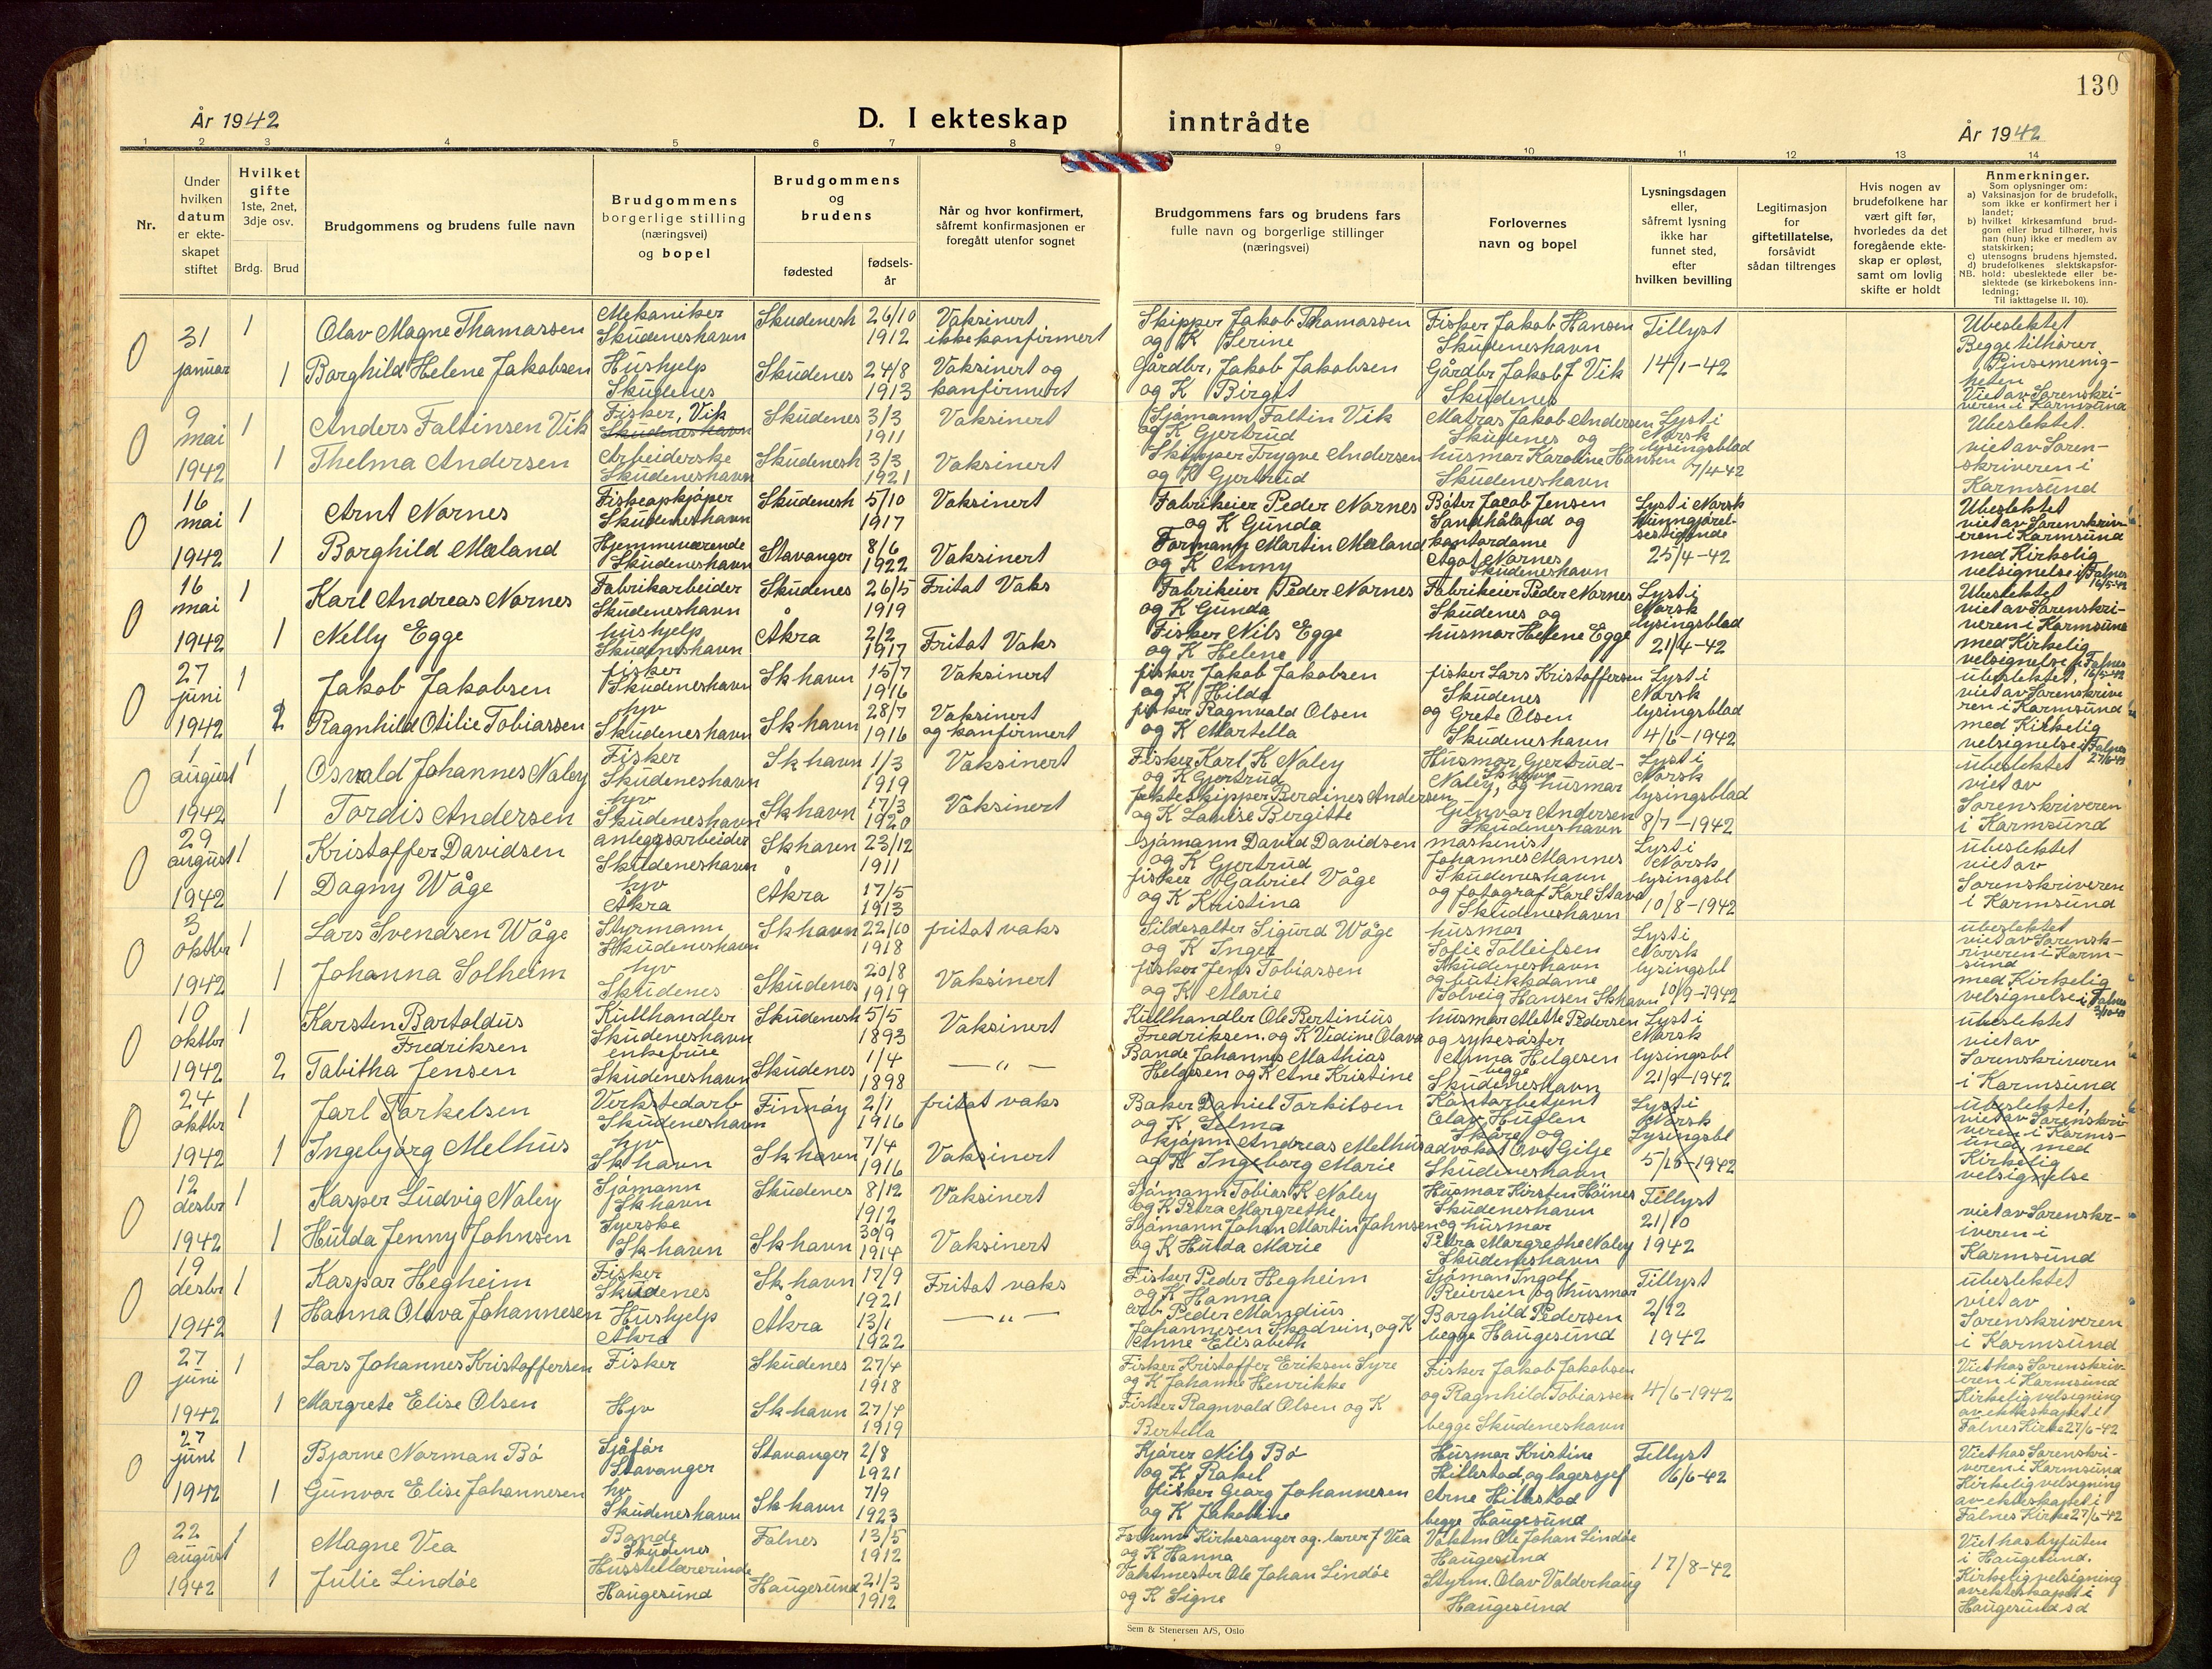 130
År 1942
D. I ekteskap inntrådte
År 1942
1 2 3 4 5 6 7 8 9 10 11 12 13 14
Nr.
Under
hvilken
datum
er ekte-
skapet
stiftet
Hvilket
gifte
1ste, 2net,
3dje osv.
Brdg. Brud
Brudgommens og brudens fulle navn
Brudgommens
borgerlige stilling
(næringsvei)
og bopel
Brudgommens
og
brudens
fødested
fødsels-
år
Når og hvor konfirmert,
såfremt konfirmasjonen er
foregått utenfor sognet
Brudgommens fars og brudens fars
fulle navn og borgerlige stillinger
(næringsvei)
Forlovernes
navn og bopel
Lysningsdagen
eller,
såfremt lysning
ikke har
funnet sted,
efter
hvilken bevilling
Legitimasjon
for
giftetillatelse,
forsåvidt
sådan tiltrenges
Hvis nogen av
brudefolkene har
vært gift før,
hvorledes da det
foregående ekte-
skap er opløst,
samt om lovlig
skifte er holdt
Anmerkninger.
Som oplysninger om:
a) Vaksinasjon for de brudefolk,
som ikke er konfirmert her i
landet;
b) hvilket kirkesamfund brud-
gom eller brud tilhører, hvis
han (hun) ikke er medlem av
statskirken;
c) utensogns brudens hjemsted.
d) brudefolkenes slektskapsfor-
NB. hold: ubeslektede eller be-
slektede (se kirkebokens inn-
ledning;
Til iakttagelse II. 10).
31
januar
1
Olav Magne Thomassen
Mekaniker
Skudeneshavn
Skudenesh
26/10
1912
Vaksinert
ikke konfirmert
Skipper Jakob Thomassen
og K Serine
Fisker Jakob Hansen
Skudeneshavn
Tillyst
14/1-42
Ubeslektet
Begge tilhører
Pinsemenig-
heten
Viet av Sorenskri-
veren i Karmsund
1
Borghild Helene Jakobsen
Hushjelp
Skudenes
Skudenes
24/8
1913
Vaksinert og
konfirmert
Gårdbr, Jakob Jakobsen
og K Birgit
Gårdbr Jakob J Vik
Skudenes
9
mai
1942
1
Anders Faltinsen Vik
Fisker, Vik
Skudeneshavn
Skudenes
3/3
1911
Vaksinert
Sjømann Faltin Vik
og K Gjertrud
Matros Jakob Andersen
Skudenes og
Lyst i
Norsk
lysingsblad
7/4-42
Ubeslektet.
viet av Soren-
skriveren i
Karmsund
1
Thelma Andersen
Arbeiderske
Skudeneshavn
Skudenesh
3/3
1921
Vaksinert
Skipper Trygve Andersen
og K Gjertrud
husmor Karoline Hansen
Skudeneshavn
16
mai
1942
1
Arnt Nornes
Fiskeopkjøper
Skudeneshavn
Skudenesh
5/10
1917
Vaksinert
Fabrikeier Peder Nornes
og K Gunda
Bøter Jacob Jensen
Sandhåland og
Lyst i Norsk
Kunngjørel-
sestidende
25/4-42
Ubeslektet
viet av Sorenskriv-
eren i Karmsund
med Kirkelig
velsignelse i Falnes
16/5-42
1
Borghild Mæland
Hjemmeværende
Skudeneshavn
Stavanger
8/6
1922
Vaksinert
Formann Martin Mæland
og K Anny
kontordame
Agot Nornes
Skudeneshavn
16
mai
1942
1
Karl Andreas Nornes
Fabrikarbeider
Skudeneshavn
Skudenes
26/5
1919
Fritat Vaks
Fabrikeier Peder Nornes
og K Gunda
Fabrikeier Peder Nornes
Skudenes og
Lyst i
Norsk
lysingsblad
21/4-42
Ubeslektet
viet av Sorenskri-
veren i Karmsund
med Kirkelig
velsignelse i Falnes
16/5-42
1
Nelly Egge
hushjelp
Skudeneshavn
Åkra
2/2
1917
Fritat Vaks
Fisker Nils Egge
og K Helene
husmor Helene Egge
27
juni
1942
1
Jakob Jakobsen
fisker
Skudeneshavn
Sk havn
15/7
1916
Vaksinert
fisker Jakob Jakobsen
og K Hilda
fisker Lars Kristoffersen
Skudenes
Lyst i
Norsk
lysingsblad
4/6-1942
ubeslektet,
viet av Sorenskrive
ren i Karmsund
med Kirkelig
velsignelse i Falnes
27/6-42
2
Ragnhild Otilie Tobiassen
hjv
Skudeneshavn
Sk havn
28/7
1916
Vaksinert
og konfirmert
fisker Ragnvald Olsen
og K Martella
og Grete Olsen
Skudeneshavn
1
august
1942
1
Osvald Johannes Naley
Fisker
Skudeneshavn
Sk havn
1/3
1919
Vaksinert
Fisker Karl, K Naley
og K Gjertrud
Husmor, Gjertrud
Naley, og husmor
Lyst i
Norsk
lysingsblad
8/7-1942
ubeslektet
viet av
Sorenskriveren
i Karmsund
1
Tordis Andersen
hjv
Skudeneshavn
Sk havn
17/3
1920
Vaksinert
jakteskipper Berdines Andersen
og K Lovise Bergitte
Gunvor Andersen
Skudeneshavn
29
august
1942
1
Kristoffer Davidsen
anleggsarbeider
Skudeneshavn
Sk havn
23/12
1911
sjømann David Davidsen
og K Gjertrud
maskinist
Johannes Mannes
Skudeneshavn
Lyst i
Norsk
lysingsbl
10/8-1942
ubeslektet
viet av
Sorenskriveren
i Karmsund
1
Dagny Våge
hjv
Åkra
Åkra
17/5
1913
fisker Gabriel Våge
og K Kristina
og fotograf Karl Stava
Skudeneshavn
3
oktbr
1942
1
Lars Svendsen Våge
Styrmann
Skudeneshavn
Sk havn
22/10
1918
fritat vaks
Sildesalter Sigurd Våge
og K Inger
husmor
Sofie Tolleifsen
Skudeneshavn
Lyst i
Norsk
lysingsbl
10/9-1942
ubeslektet
viet av Sorensk-
riveren i Karm-
sund
med Kirkelig
velsignelse i Falnes
1
Johanna Solheim
hjv
Skudenes
Skudenes
20/8
1919
Vaksinert
fisker Jens Tobiassen
og K Marie
og butikkdame
Solveig Hansen Sk havn
10
oktbr
1942
1
Karsten Bartoldus
Fredriksen
Kullhandler
Skudeneshavn
Skudenesh
5/5
1893
Vaksinert
Kullhandler Ole Bertinius
Fredriksen. og K Vedine Olava
husmor Mette Pedersen
og sykesøster
Lyst i
Norsk
lysingsbl
21/9-1942
ubeslektet
viet av
Sorenskriveren
i Karmsund
2
Tabitha Jensen
enkefrue
Skudeneshavn
Skudenes
1/4
1898
— " —
Bonde Johannes Mathias
Helgesen og K Ane Kristine
Anna Helgesen
begge
Skudeneshavn
24
oktbr
1942
1
Jarl Torkelsen
Verkstedarb
Skudeneshavn
Finnøy
2/1
1916
fritat vaks
Baker Daniel Torkilsen
og K Selma
Kontorbetjent
Olav Huglen
Skåre og
Lyst i
Norsk
Lysingsbl
5/10-1942
ubeslektet,
viet av Sorenskri-
veren i Karms-
und, med
Kirkelig
velsignelse
1
Ingebjørg Melhus
hjv
Sk havn
Sk havn
7/4
1916
Vaksinert
kjøpm Andreas Melhus
og K Ingeborg Marie
advokat Ove Gilje
Skudeneshavn
12
desbr
1942
1
Kasper Ludvig Naley
Sjømann
Sk havn
Skudenes
8/12
1912
Vaksinert
Sjømann Tobias K Naley
og K Petra Margrethe
Husmor Kirsten Høines
Skudeneshavn
Tillyst
21/10
1942
viet av Sorenskr-
iveren i
Karmsund
1
Hulda Jenny Johnsen
Syerske
Sk havn
Sk havn
30/9
1914
Vaksinert
Sjømann Johan Martin Johnsen
og K Hulda Marie
og husmor
Petra Margrethe Naley
Skudeneshavn
19
desbr
1942
1
Kaspar Hegheim
Fisker
Skudenes
Sk havn
17/9
1921
Fritat vaks
Fisker Peder Hegheim
og K Hanna
Sjøman Ingolf
Reiersen og husmor
Tillyst
2/12
1942
ubeslektet
viet av
Sorenskriveren
i Karmsund
1
Hanna Olava Johannesen
Hushjelp
Åkra
Åkra
13/1
1922
— " —
arb Peder Mandius
Johannesen Skodvin, og K
Anne Elisabeth
Borghild Pedersen
begge Haugesund
27
juni
1942
1
Lars Johannes Kristoffersen
Fisker
Skudenes
27/4
1918
Fisker Kristoffer Eriksen Syre
og K Johanne Henrikke
Fisker Jakob Jakobsen
og Ragnhild Tobiassen
4/6-1942
Viet hos Sorenskriv-
eren i Karmsund
Kirkelig velsigning
av ekteskapet i
Falnes Kirke 27/6-42
1
Margrete Elise Olsen
Hjv
Sk havn
27/4
1919
Fisker Ragnvald Olsen og K
Bertella
begge Skudeneshavn
27
juni
1942
1
Bjarne Norman Bø
Sjåfør
Stavanger
Stavanger
2/8
1921
Kjører Nils Bø
og K Rakel
Husmor Kristine
Hillestad, og lagersjef
Tillyst
6/6-42
Viet hos Sorenskri-
veren i Karmsund
Kirkelig velsigning
av ekteskapet i
Falnes Kirke 27/6-42
1
Gunvor Elise Johannesen
hv
Skudeneshavn
Sk havn
7/9
1923
fisker Georg Johannesen
og K Jakobine
Arne Hillestad
begge Haugesund
22
august
1942
1
Magne Vea
Bonde
Skudenes
Falnes
13/5
1912
Kirkesanger og lærer J Vea
og K Hanna
Vaktm Ole Johan Lindøe
Haugesund
17/8-42
Viet hos byfuten
i Haugesund.
Kirkelig velsigning
av ekteskapet i
Haugesund s d
1
Julie Lindøe
Husstellærerinde
Haugesund
Haugesund
21/3
1912
Vaktmester Ole Johan Lindøe
og K Signe
Styrm. Olav Valderhaug
Haugesund
Sem & Stenersen A/S, Oslo